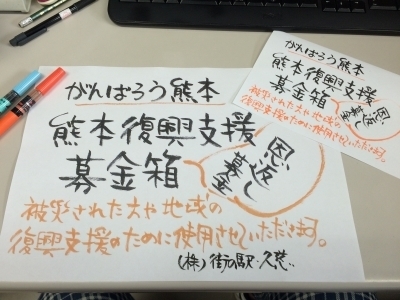 がんばろう熊本
熊本復興支援
募金箱
恩返し
募金
被災された方や地域の
復興支援のために使用させていただきます。
(株)街の駅・久慈
がんばろう熊本
熊本復興支援
募金箱
恩返し
募金
被災された方や地域の
復興支援のために使用させていただきます。